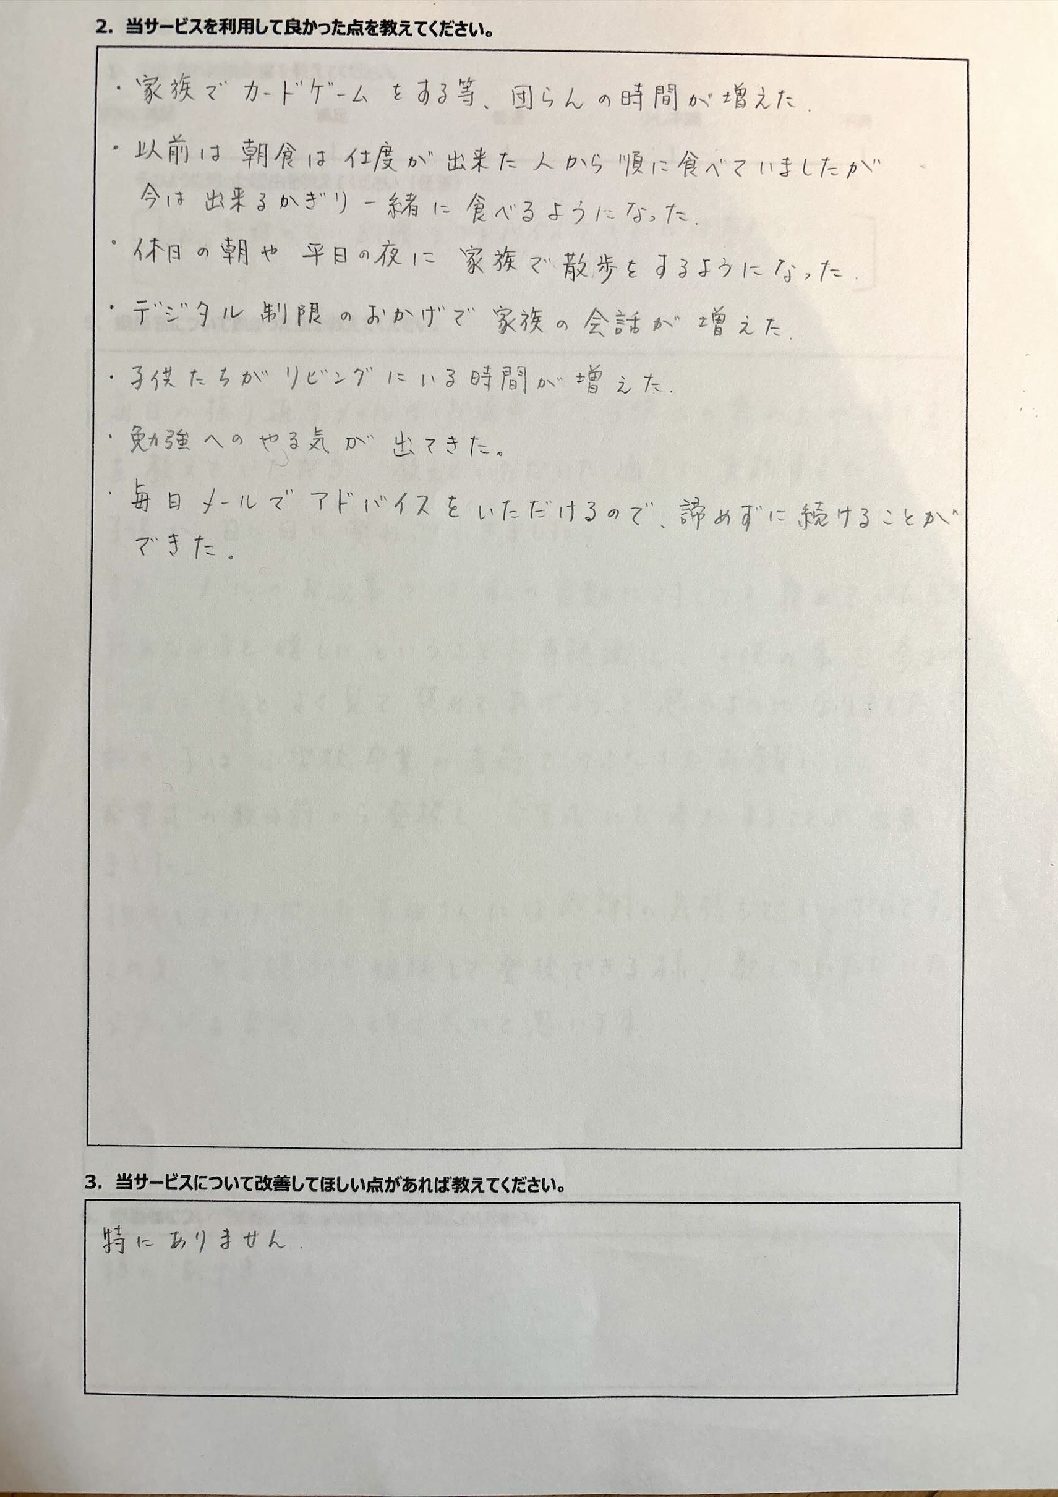 2. 当サービスを利用して良かった点を教えてください。
・家族でカードゲームをする等、団らんの時間が増えた.
・以前は朝食は仕度が出来た人から順に食べていましたが
今は出来るかぎり一緒に食べるようになった.
・休日の朝や平日の夜に家族で散歩をするようになった.
・デジタル制限のおかげで家族の会話が増えた.
・子供たちがリビングにいる時間が増えた.
・勉強へのやる気が出てきた。
・毎日メールでアドバイスをいただけるので、諦めずに続けることが
できた。
3. 当サービスについて改善してほしい点があれば教えてください。
特にありません.